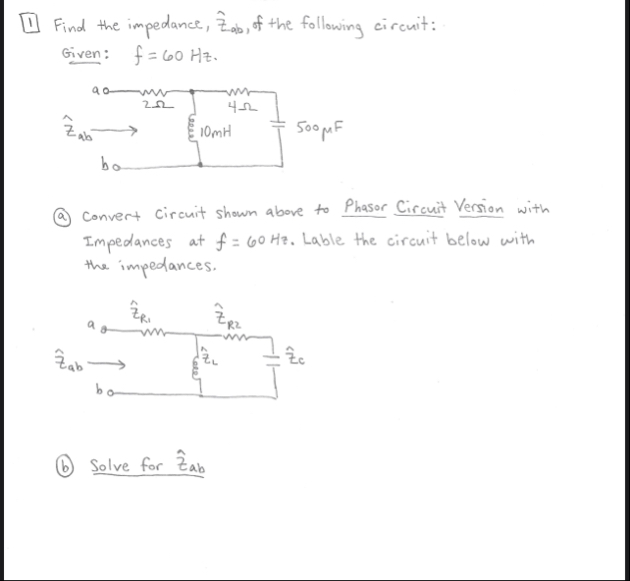 1 Find the impedance, Ẑab, of the following circuit:
Given: f = 60 Hz.
a
2Ω
4Ω
Ẑab
10mH
500μF
b
(a) Convert circuit shown above to Phasor Circuit Version with
Impedances at f = 60 Hz. Lable the circuit below with
the impedances.
ẐR1
ẐR2
a
Ẑab
ẐL
Ẑc
b
(b) Solve for Ẑab